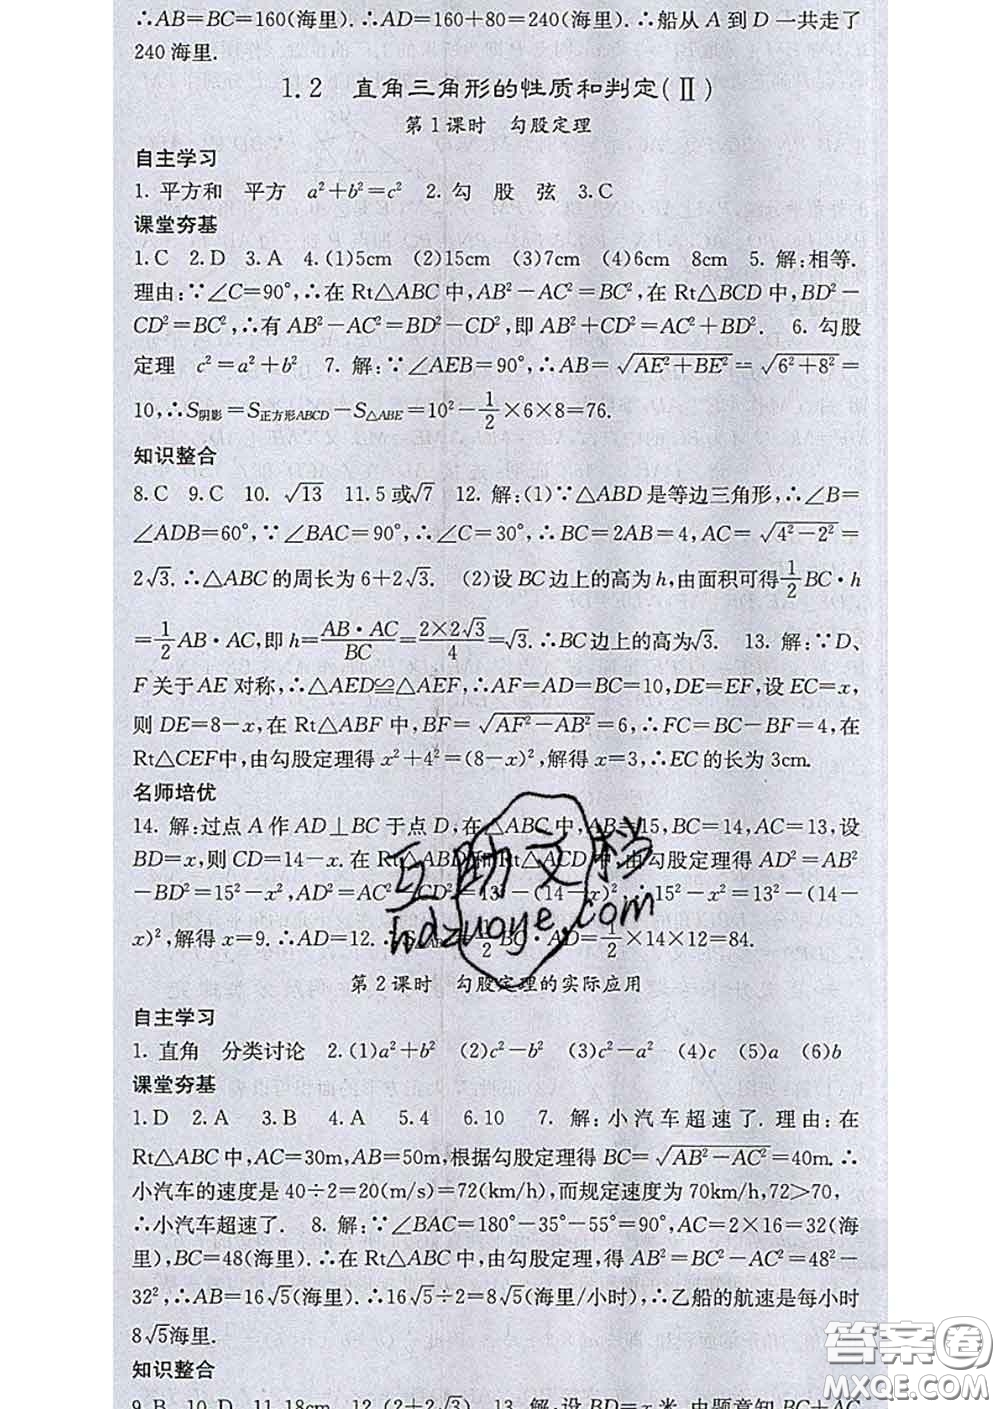 ∴AB=BC=160(海里).∴AD=160+80=240(海里).∴船从 A 到 D 一共走了
240 海里.
1.2 直角三角形的性质和判定(Ⅱ)
第 1 课时 勾股定理
自主学习
1. 平方和 平方 a²+b²=c² 2. 勾 股 弦 3.C
课堂夯基
1.C 2.D 3.A 4.(1)5cm (2)15cm (3)7cm (4)6cm 8cm 5. 解:相等.
理由:∵∠C=90°,∴在 Rt△ABC 中,AB²-AC²=BC²,在 Rt△BCD 中,BD²-
CD²=BC²,∴有 AB²-AC²=BD²-CD²,即 AB²+CD²=AC²+BD². 6. 勾股
定理 c²=a²+b² 7. 解:∵∠AEB=90°,∴AB=√(AE²+BE²)=√(6²+8²)=
10,∴S阴影=S正方形ABCD-S△ABE=10²-1/2×6×8=76.
知识整合
8.C 9.C 10. √13 11.5 或√7 12. 解:(1)∵△ABD 是等边三角形,∴∠B=
∠ADB=60°,∵∠BAC=90°,∴∠C=30°,∴BC=2AB=4,AC=√(4²-2²)=
2√3.∴△ABC 的周长为 6+2√3. (2)设 BC 边上的高为 h,由面积可得1/2BC·h
=1/2AB·AC,即 h=AB·AC/BC=2×2√3/4=√3.∴BC 边上的高为√3. 13. 解:∵D、
F 关于 AE 对称,∴△AED≌△AEF,∴AF=AD=BC=10,DE=EF,设 EC=x,
则 DE=8-x,在 Rt△ABF 中,BF=√(AF²-AB²)=6,∴FC=BC-BF=4,在
Rt△CEF中,由勾股定理得 x²+4²=(8-x)²,解得 x=3,∴EC 的长为 3cm.
名师培优
14. 解:过点 A 作 AD⊥BC 于点 D,在△ABC 中,AB=15,BC=14,AC=13,设
BD=x,则 CD=14-x.在 Rt△ABD 和 Rt△ACD 中,由勾股定理得 AD²=AB²
-BD²=15²-x²,AD²=AC²-CD²=13²-(14-x)²,∴15²-x²=13²-(14-
x)²,解得 x=9.∴AD=12.∴S△ABC=1/2BC·AD=1/2×14×12=84.
互助文档
hdzuoye.com
第 2 课时 勾股定理的实际应用
自主学习
1. 直角 分类讨论 2.(1)a²+b² (2)c²-b² (3)c²-a² (4)c (5)a (6)b
课堂夯基
1.D 2.A 3.B 4.A 5.4 6.10 7. 解:小汽车超速了. 理由:在
Rt△ABC 中,AC=30m,AB=50m,根据勾股定理得 BC=√(AB²-AC²)=40m.∴
小汽车的速度是 40÷2=20(m/s)=72(km/h),而规定速度为 70km/h,72>70,
∴小汽车超速了. 8. 解:∵∠BAC=180°-35°-55°=90°,AC=2×16=32(海
里),BC=48(海里).∴在 Rt△ABC 中,由勾股定理,得 AB²=BC²-AC²=48²-
32²,∴AB=16√5(海里).∴16√5÷2=8√5(海里/小时),∴乙船的航速是每小时
8√5海里.
知识整合
9.B 10.D 11.18cm 12.(2+2√3) 13. 解:设 BD=x 米,由题意知 BC+AC
答案圈
MXQE.COM